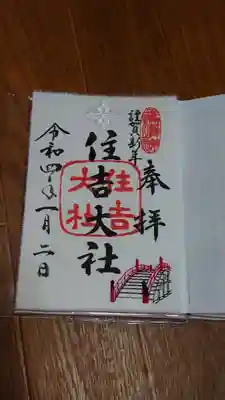 謹賀新年
奉拝
住吉大社
住吉大社
令和四年一月二日